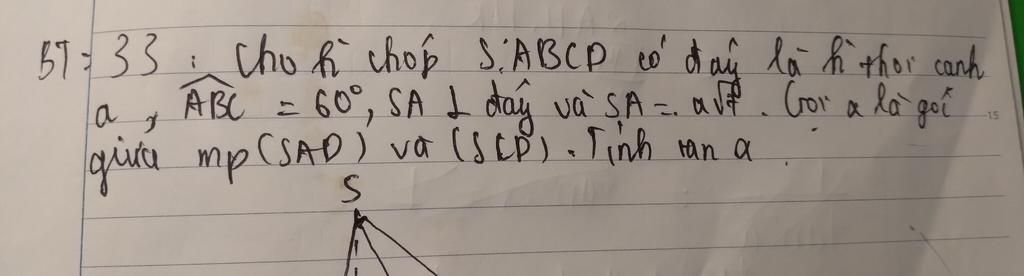 BT: 33 : Cho h chóp S.ABCD có đáy là h thoi cạnh
a, ABC = 60°, SA ⊥ đáy và SA = a√7. Gọi α là góc
giữa mp (SAD) và (SCD). Tính tan α.
15
S